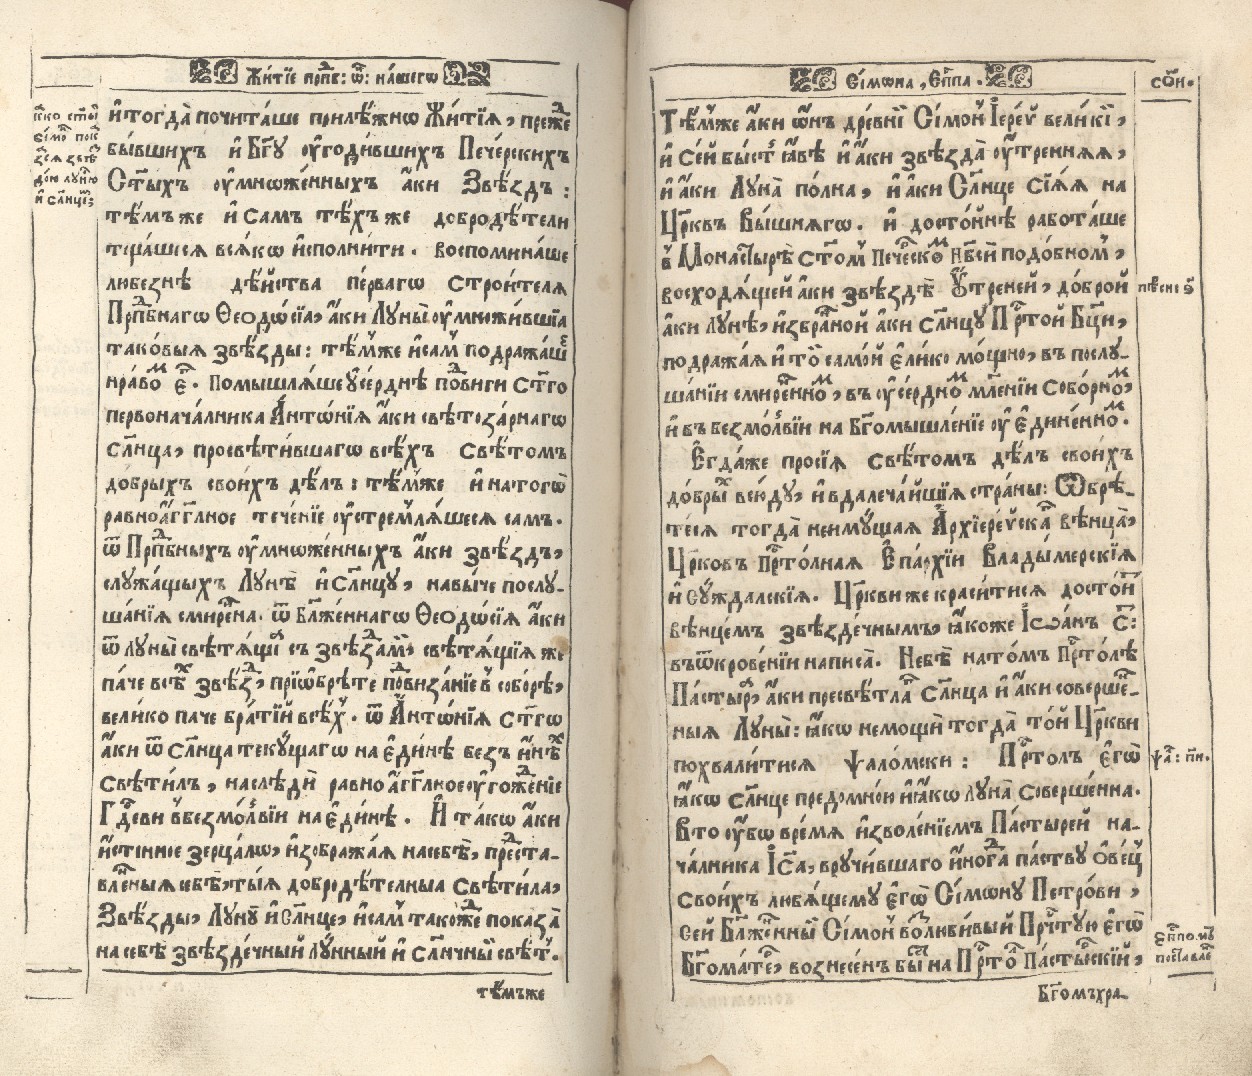 Житїе прпⷣб: ѿ: на́шегѡ
ꙗ́кѡ ст҃о́й
сі́мѡⷩ҇ пок
и҆ сл҃нцеⷨ:
и҆ тогда̀ почита́ше прилѣ́жнѡ Житїѧ̀, пре́жⷣе
бы́вшихъ и҆ Бг҃ꙋ ᲂу҆годи́вшихъ Пече́рскихъ
Ст҃ы́хъ ᲂу҆мно́женныхъ а҆́ки Ѕвѣ́здъ:
тѣ́мъже и҆ самъ тѣ́хъже добродѣ́тели
тща́шесѧ всѧ́кѡ и҆спо́лнити. воспомина́ше
любе́знѣ дѣ́йства пе́рвагѡ строи́телѧ
Прпⷣбнагѡ Ѳеодѡ́сїа, а҆́ки Лꙋны̀ ᲂу҆мно́жившїа
тако́выѧ ѕвѣ́зды: тѣ́мже и҆ самⸯ подража́ше
нра́вѡⷨ є҆гѡ̀. помышлѧ́ше ᲂу҆се́рднѣ по́двиги ст҃го
первонача́лника А҆нтѡ́нїѧ а҆́ки свѣтоза́рнагѡ
сл҃нца, просвѣти́вшагѡ всѣ́хъ свѣ́томъ
до́брыхъ свои́хъ дѣ́лъ: тѣ́мже и҆ на тогѡ̀
равноа҆́гг҃лное тече́нїе ᲂу҆стремлѧ́шесѧ самъ.
ѿ Прпⷣбныхъ ᲂу҆мно́женныхъ а҆́ки ѕвѣ́здъ,
слꙋжа́щыхъ Лꙋнѣ̀ и҆ сл҃нцꙋ, навы́че послꙋ-
ша́нїѧ смире́нна. ѿ Бл҃же́ннагѡ Ѳеодѡ́сїѧ а҆́ки
ѿ лꙋны̀ свѣтѧ́щїѧ съ ѕвѣзда́мⷨ, свѣтѧ́щїѧ же
па́че всѣⷯ ѕвѣ́зⷣ, прїѡбрѣ́те подвиза́нїе в̾ собо́рѣ,
вели́ко па́че бра́тїй всѣ́хⸯ. ѿ А҆нтѡ́нїѧ ст҃гѡ
а҆́ки ѿ сл҃нца текꙋ́щагѡ на є҆ди́нѣ безъ и҆нѣⷯ
свѣти́лъ, наслѣ́ди равноа҆́гг҃лное ᲂу҆гожⷣе́нїе
Гдⷭ҇еви в̾безмо́лвїи на є҆ди́нѣ. И҆ та́кѡ а҆́ки
и҆́стинное зерца́лѡ, и҆зобража́ѧ на себѣ̀, предⷭ҇та-
вле́ныѧ себѣ̀, ты́ѧ добродѣ́телныа свѣти́ла,
Ѕвѣ́зды, Лꙋнꙋ̀ и҆ Сл҃нце, и҆ самⸯ тако́жⷣе показа̀
на себѣ̀ ѕвѣзде́чный лꙋ́нный и҆ сл҃нчный свѣ́тⸯ.
тѣ́мъже
Сі́мѡна, Є҆пⷭ҇па.
сѻ҃и.
Тѣ́мже а҆́ки ѻ҆́нъ дре́внїй Сі́мѡнⸯ І҆ере́й вели́кїй,
и҆ се́й бы́сть ꙗ҆́вѣ и҆ а҆́ки ѕвѣзда̀ ᲂу҆́тренняѧ,
и҆ а҆́ки Лꙋна̀ по́лна, и҆ а҆́ки Сл҃нце сїѧ́ѧ на
Цр҃квъ вы́шнѧгѡ. и҆ досто́йнѣ рабо́таше
в̾ Монастырѣ̀ ст҃о́мⸯ Пече́рскоⷨ Нбⷭ҇ѣй подо́бномⸯ,
восходѧ́щей а҆́ки ѕвѣздѣ̀ ᲂу҆́треней, до́брой
а҆́ки лꙋнѣ̀, и҆збра́нной а҆́ки сл҃нцꙋ Прⷭ҇то́й Бц҃и,
пѣ́сни ѕ҃
подража́ѧ и҆ то́й само́й є҆ли́ко мо́щно, въ послꙋ-
ша́нїи смире́нноⷨ, въ ᲂу҆се́рдноⷨ мл҃е́нїи собо́рноⷨ,
и҆ въ безмо́лвїи на Бг҃омышле́нїе ᲂу҆є҆дине́нноⷨ.
Є҆гда́же просїѧ̀ свѣ́томъ дѣ́лъ свои́хъ
до́брыⷯ всю́дꙋ, и҆ в̾ далеча́йшїѧ страны̀: Ѡ҆брѣ́-
тесѧ тогда̀ не и҆мꙋ́щаѧ А҆рхїере́йскаⷢ вѣнца̀,
Цр҃ковъ прⷭ҇то́лнаѧ Є҆па́рхїи Влады́мерскїѧ
и҆ Сꙋ́ждалскїѧ. Цр҃кви же краси́тисѧ досто́йⷩ҇
вѣнце́мъ ѕвѣзде́чнымъ, ꙗ҆́коже І҆ѡа́нъ с҃:
въ ѿкрове́нїи написа̀. Не бѣ̀ на то́мъ прⷭ҇то́лѣ
Па́стырⷽ҇, а҆́ки пресвѣ́тлаⷢ Сл҃нца и҆ а҆́ки соверше́н-
ныѧ Лꙋны̀: ꙗ҆́кѡ не мощѝ тогда̀ то́й Цр҃кви
похвали́тисѧ ѱало́мски: Прⷭ҇то́лъ є҆гѡ̀
ѱаⷧ: пи.
ꙗ҆́кѡ сл҃нце предо мно́й и҆ ꙗ҆́кѡ лꙋна̀ соверше́нна.
В то ᲂу҆́бѡ вре́мѧ и҆зволе́нїемъ Па́стырей на-
ча́лника І҆и҃са, врꙋчи́вшаго и҆ногда̀ па́ствꙋ ѻ҆ве́цⸯ
свои́хъ лю́бѧщемꙋ є҆гѡ̀ Сі́мѡнꙋ Петро́ви,
се́й Бл҃же́нный Сі́мѡнⸯ возлю́бивый Прⷭ҇тꙋю є҆гѡ̀
Бг҃ома́терⷽ҇, вознесе́нъ бы́сть на Прⷭ҇то́лⸯ Па́стырскїй,
Є҆пⷭ҇помⸯ
поста́вле
Бг҃омъ хра-